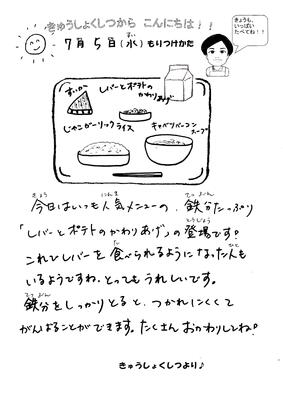 きゅうしょくしつから こんにちは!!
7月5日(水)もりつけかた
すい
きょうも、
いっぱい
たべてね!!
すいか
レバーとポテトの
かわりあげ
じゃこガーリックライス
キャベツベーコン
スープ
きょう にんき てつ ぶん
今日はいつも人気メニューの、鉄分たっぷり
とうじょう
「レバーとポテトのかわりあげ」の登場です。
た ひと
これでレバーを食べられるようになった人も
いるようですね。とってもうれしいです。
てつ ぶん
鉄分をしっかりとると、つかれにくくて
がんばることができます。たくさんおかわりしてね!
きゅうしょくしつより♪